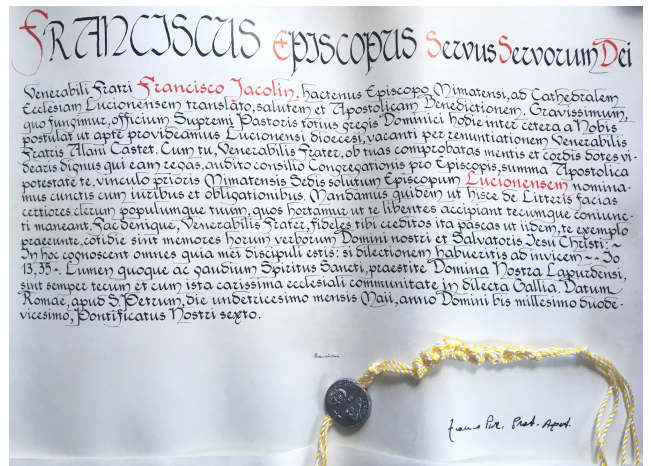 Franciscus Episcopus Servus Servorum Dei
Venerabili Fratri Francisco Jacolin, hactenus Episcopo Mimatensi, ad Cathedralem
Ecclesiam Lucionensem translato, salutem et Apostolicam Benedictionem. Gravissimum,
quo fungimur, officium Supremi Pastoris totius gregis Dominici hodie inter cetera a Nobis
postulat ut apte provideamus Lucionensi dioecesi, vacanti per renuntiationem Venerabilis
Fratris Alani Castet. Cum tu, Venerabilis Frater, ob tuas comprobatas mentis et cordis dotes vi-
dearis dignus qui eam regas, audito consilio Congregationis pro Episcopis, summa Apostolica
potestate te, vinculo prioris Mimatensis Sedis solutum Episcopum Lucionensem nomina-
mus cunctis cum iuribus et obligationibus. Mandamus quidem ut hisce de Litteris facias
certiores clerum populumque tuum, quos hortamur ut te libentes accipiant tecumque coniunc-
ti maneant. Fac denique, Venerabilis Frater, fideles tibi creditos ita pascas ut iidem, te exemplo
praeeunte, cotidie sint memores horum verborum Domini nostri et Salvatoris Iesu Christi: ~
In hoc cognoscent omnes quia mei discipuli estis: si dilectionem habueritis ad invicem ~ - Io
13,35-. Lumen quoque ac gaudium Spiritus Sancti, praestite Domina Nostra Lapurdensi,
sint semper tecum et cum ista carissima ecclesiali communitate in dilecta Gallia. Datum
Romae, apud S. Petrum, die undetricesimo mensis Maii, anno Domini bis millesimo duode-
vicesimo, Pontificatus Nostri sexto.
Franciscus
Prot. Apost.